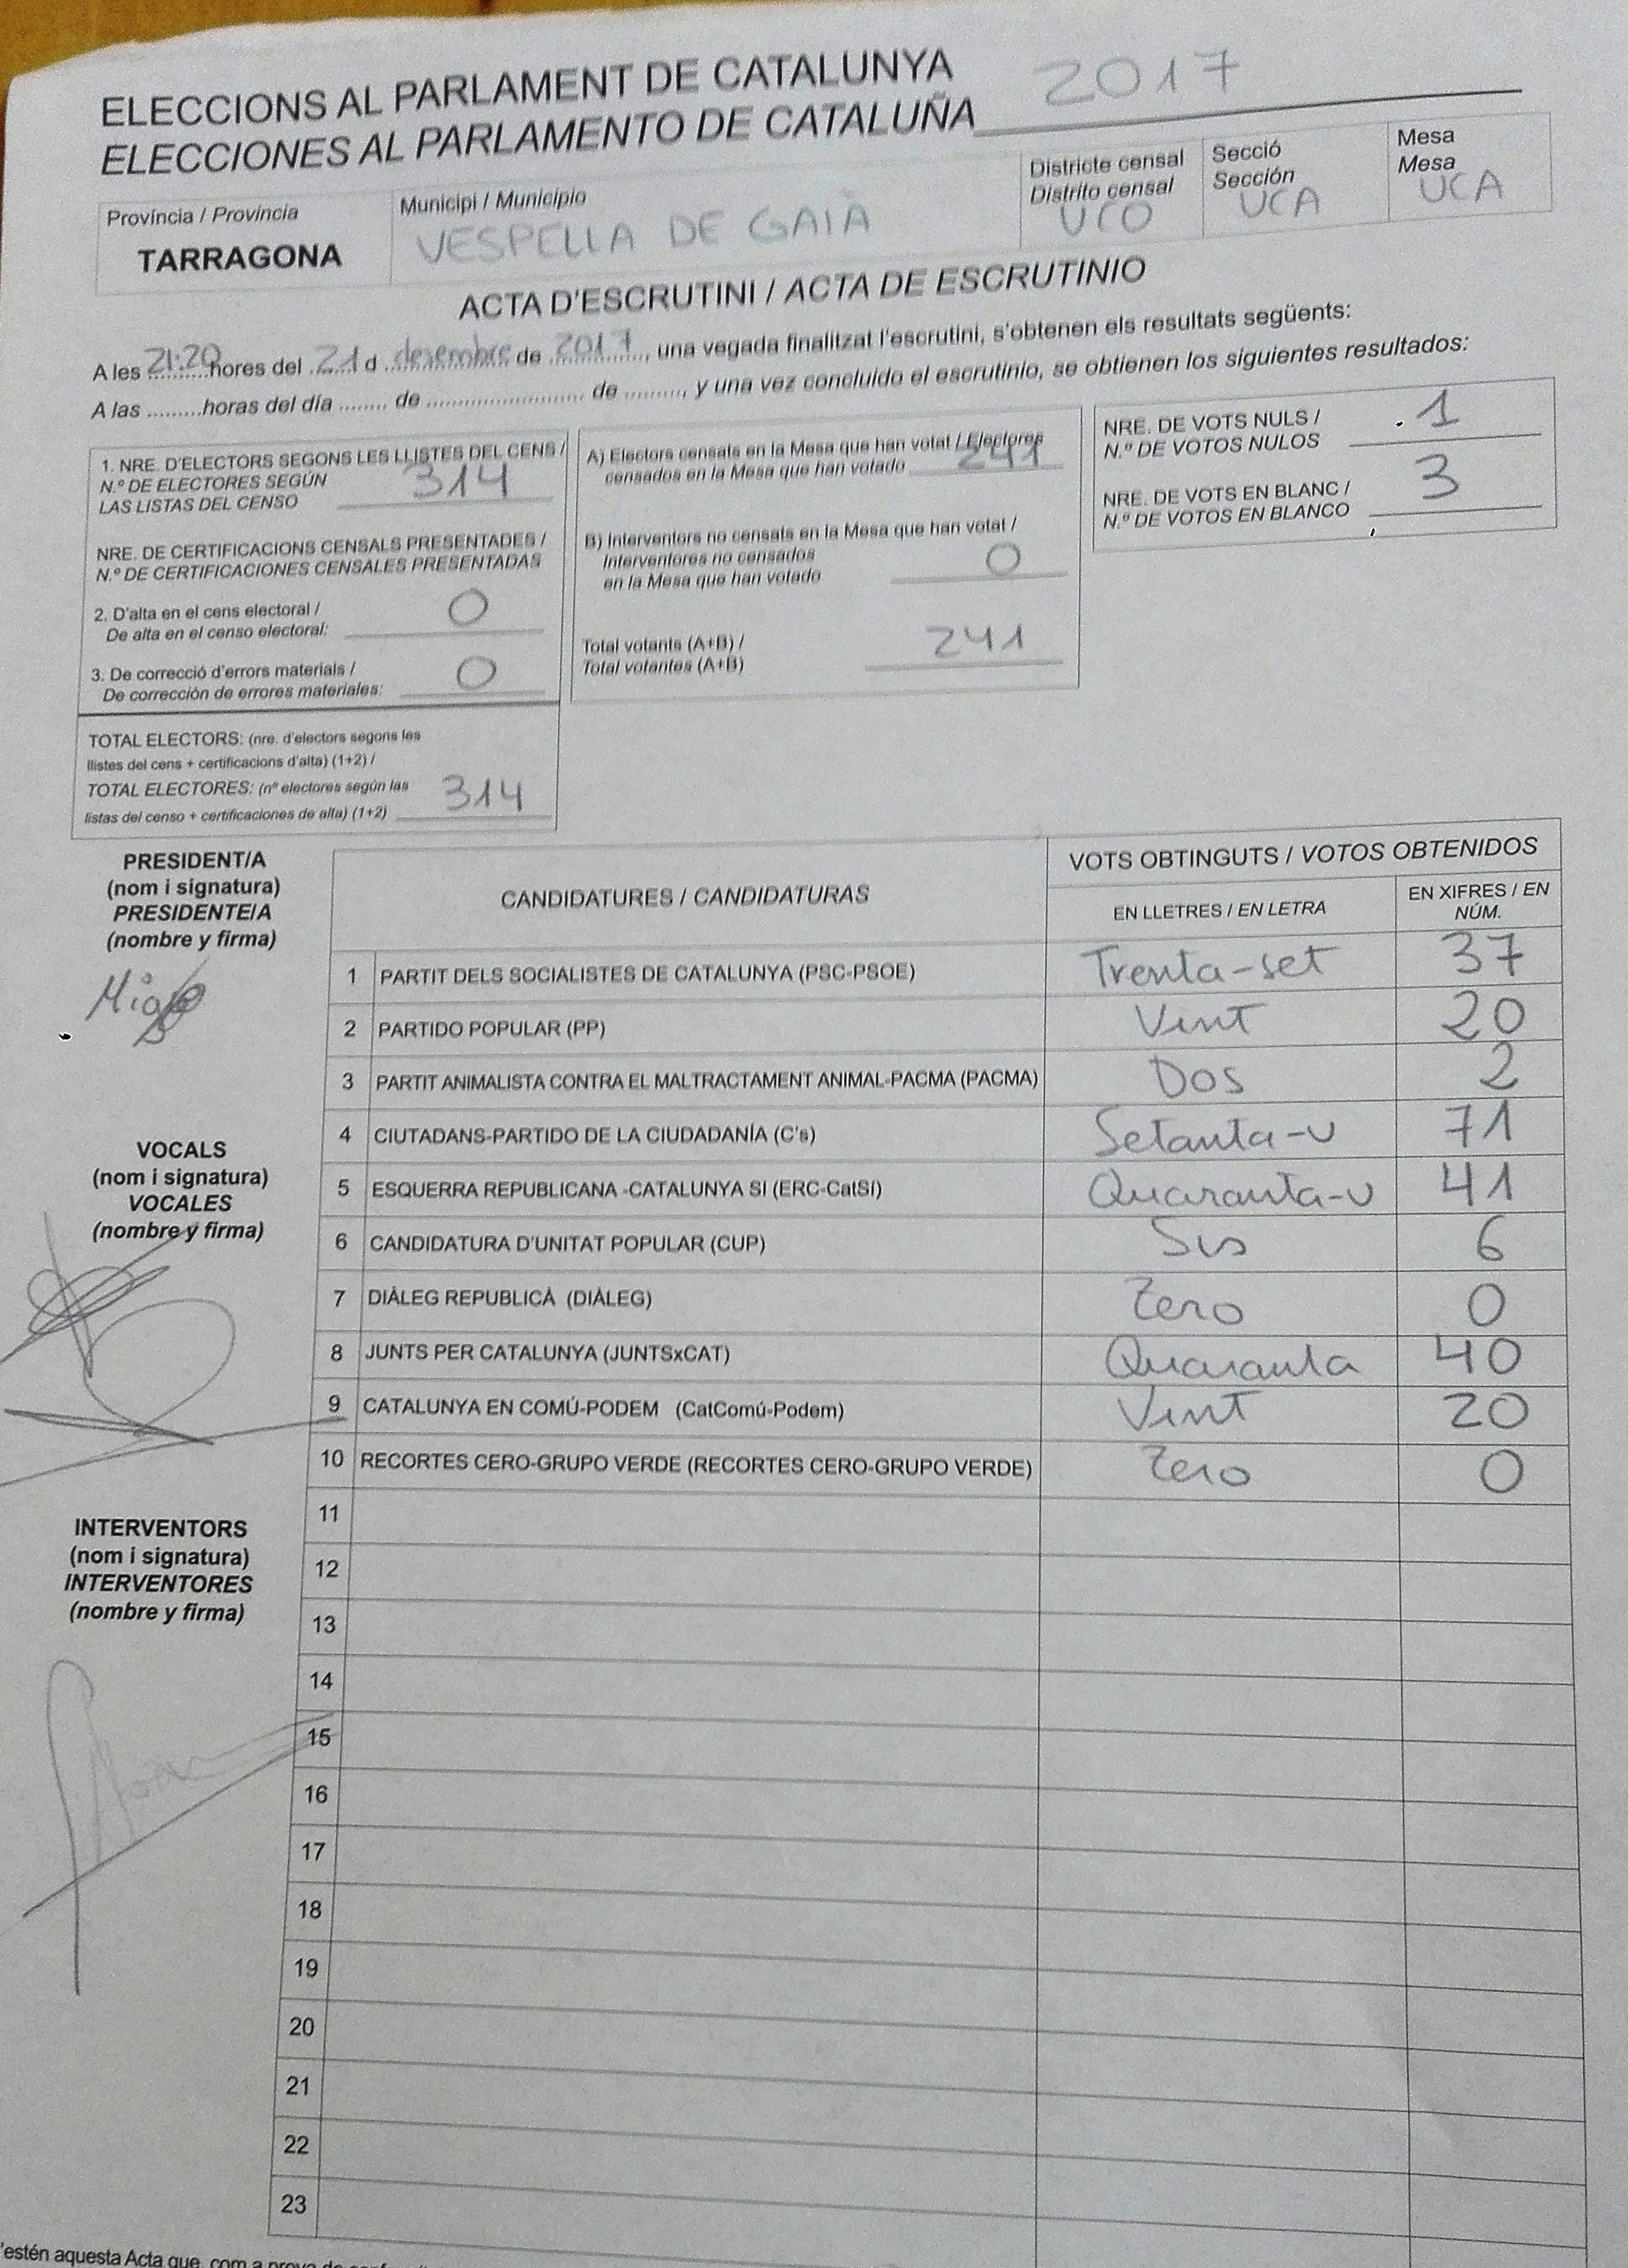 ELECCIONS AL PARLAMENT DE CATALUNYA
ELECCIONES AL PARLAMENTO DE CATALUÑA 2017
Província / Provincia
TARRAGONA
Municipi / Municipio
VESPELLA DE GAIÀ
Districte censal
Distrito censal
UCO
Secció
Sección
UCA
Mesa
Mesa
UCA
ACTA D'ESCRUTINI / ACTA DE ESCRUTINIO
A les 21:20 hores del 21 d desembre de 2017, una vegada finalitzat l'escrutini, s'obtenen els resultats següents:
A las .........horas del día ........ de ........................ de ........., y una vez concluido el escrutinio, se obtienen los siguientes resultados:
1. NRE. D'ELECTORS SEGONS LES LLISTES DEL CENS /
N.º DE ELECTORES SEGÚN
LAS LISTAS DEL CENSO 314
NRE. DE CERTIFICACIONS CENSALS PRESENTADES /
N.º DE CERTIFICACIONES CENSALES PRESENTADAS
2. D'alta en el cens electoral /
De alta en el censo electoral: 0
3. De correcció d'errors materials /
De corrección de errores materiales: 0
TOTAL ELECTORS: (nre. d'electors segons les
llistes del cens + certificacions d'alta) (1+2) /
TOTAL ELECTORES: (nº electores según las
listas del censo + certificaciones de alta) (1+2) 314
A) Electors censats en la Mesa que han votat / Electores
censados en la Mesa que han votado 241
B) Interventors no censats en la Mesa que han votat /
Interventores no censados
en la Mesa que han votado 0
Total votants (A+B) /
Total votantes (A+B) 241
NRE. DE VOTS NULS /
N.º DE VOTOS NULOS 1
NRE. DE VOTS EN BLANC /
N.º DE VOTOS EN BLANCO 3
PRESIDENT/A
(nom i signatura)
PRESIDENTE/A
(nombre y firma)
VOCALS
(nom i signatura)
VOCALES
(nombre y firma)
INTERVENTORS
(nom i signatura)
INTERVENTORES
(nombre y firma)
CANDIDATURES / CANDIDATURAS
VOTS OBTINGUTS / VOTOS OBTENIDOS
EN LLETRES / EN LETRA
EN XIFRES / EN
NÚM.
1 PARTIT DELS SOCIALISTES DE CATALUNYA (PSC-PSOE) Trenta-set 37
2 PARTIDO POPULAR (PP) Vint 20
3 PARTIT ANIMALISTA CONTRA EL MALTRACTAMENT ANIMAL-PACMA (PACMA) Dos 2
4 CIUTADANS-PARTIDO DE LA CIUDADANÍA (C's) Setanta-u 71
5 ESQUERRA REPUBLICANA -CATALUNYA SI (ERC-CatSí) Quaranta-u 41
6 CANDIDATURA D'UNITAT POPULAR (CUP) Sis 6
7 DIÀLEG REPUBLICÀ (DIÀLEG) Zero 0
8 JUNTS PER CATALUNYA (JUNTSxCAT) Quaranta 40
9 CATALUNYA EN COMÚ-PODEM (CatComú-Podem) Vint 20
10 RECORTES CERO-GRUPO VERDE (RECORTES CERO-GRUPO VERDE) Zero 0
11
12
13
14
15
16
17
18
19
20
21
22
23
'estén aquesta Acta que, com a prova de